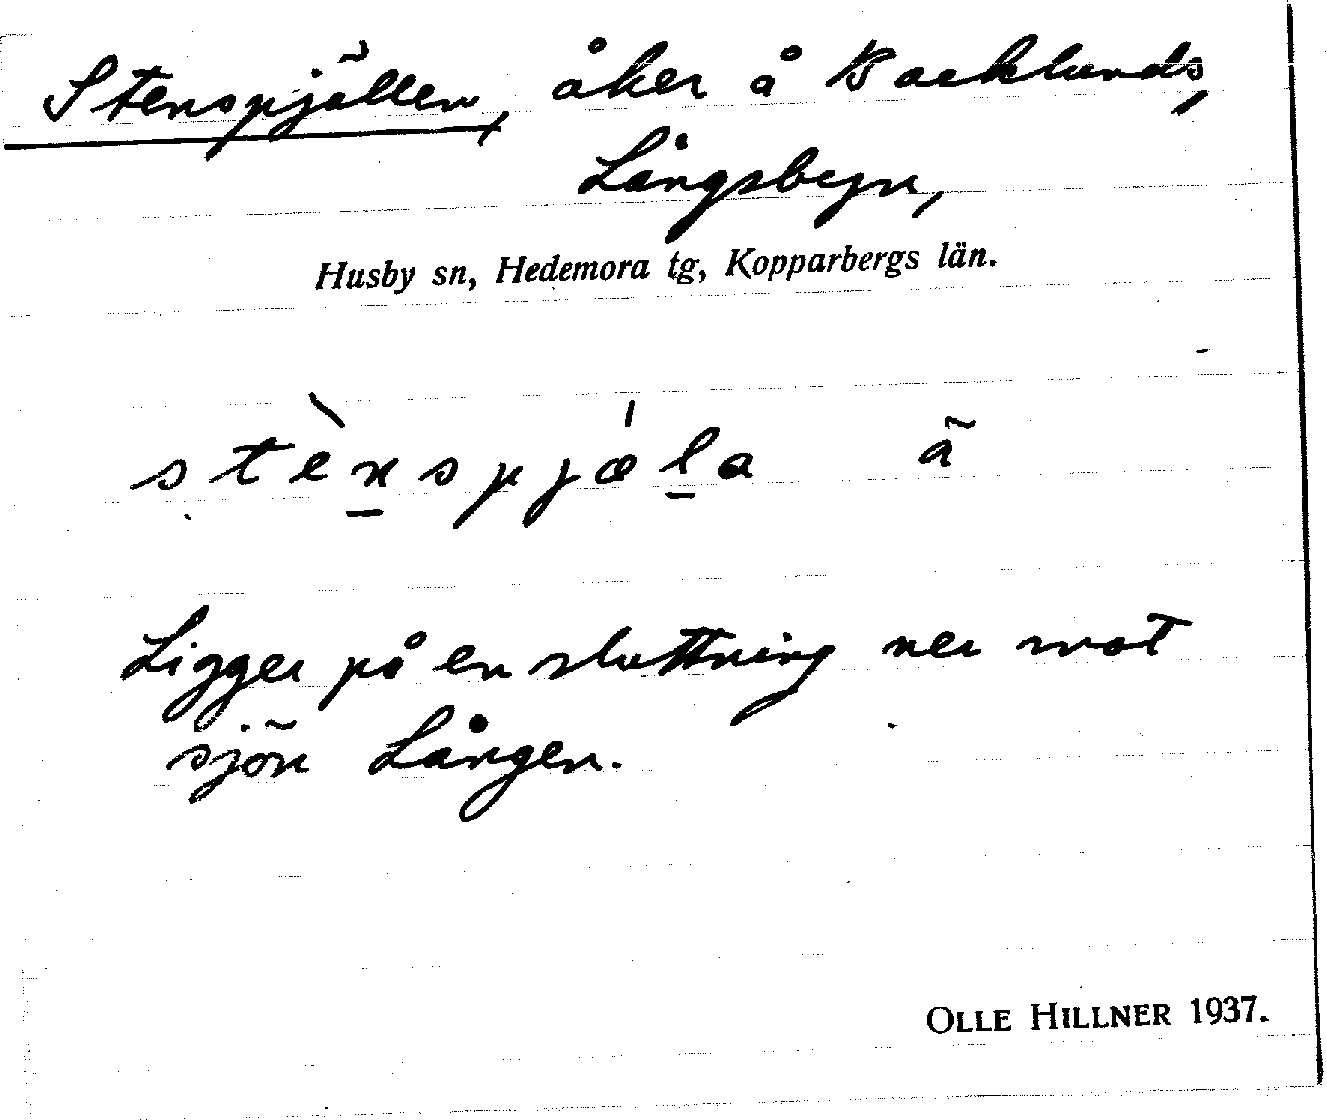 Stenspjällen, åker å Backlunds,
Långsbyn,
Husby sn, Hedemora tg, Kopparbergs län.
stè̱nspjæ̍ḻa ã
Ligger på en sluttning ner mot
sjön Lången.
OLLE HILLNER 1937.